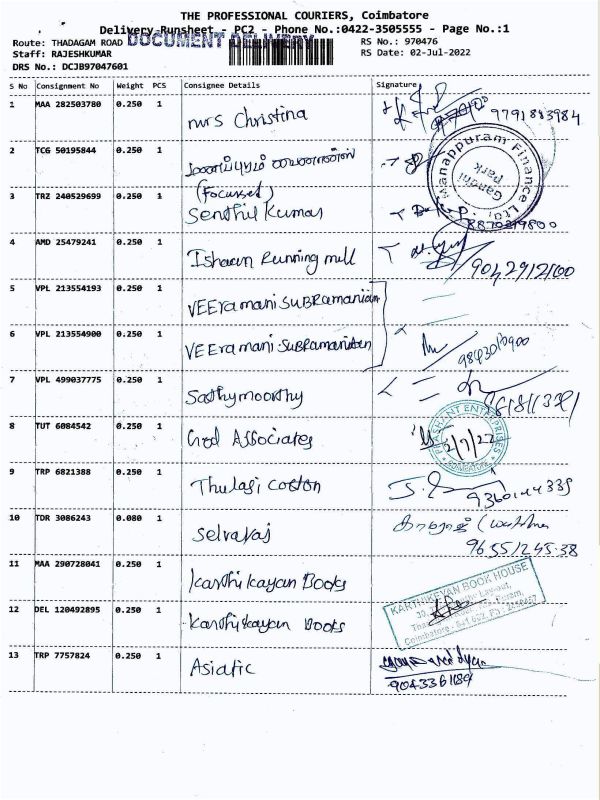 THE PROFESSIONAL COURIERS, Coimbatore
Delivery Runsheet - PC2 - Phone No.:0422-3505555 - Page No.:1
Route: THADAGAM ROAD DOCUMENT DELIVERY RS No.: 970476
Staff: RAJESHKUMAR RS Date: 02-Jul-2022
DRS No.: DCJB97047601
S No Consignment No Weight PCS Consignee Details Signature
1 MAA 282503780 0.250 1 mrs Christina 9791883984
2 TCG 50195844 0.250 1
Manappuram Finance Ltd, Gandhi Park
(Focussed)
3 TRZ 240529699 0.250 1 Senthil Kumar
4 AMD 25479241 0.250 1 Ishaan Running mill
5 VPL 213554193 0.250 1 VEEramani SUBRamanian
6 VPL 213554900 0.250 1 VEEramani SUBRamanian
7 VPL 499037775 0.250 1 Sathymoorthy
8 TUT 6084542 0.250 1 God Associates 2/7/22
PRASHANT ENTERPRISES COIMBATORE
9 TRP 6821388 0.250 1 Thulasi cotton
10 TDR 3086243 0.080 1 Selvaraj
9655124538
11 MAA 290728041 0.250 1 Karthikayan Books
KARTHIKEYAN BOOK HOUSE
12 DEL 120492895 0.250 1 Karthikayan Books
Coimbatore - 641 002.
13 TRP 7757824 0.250 1 Asiatic